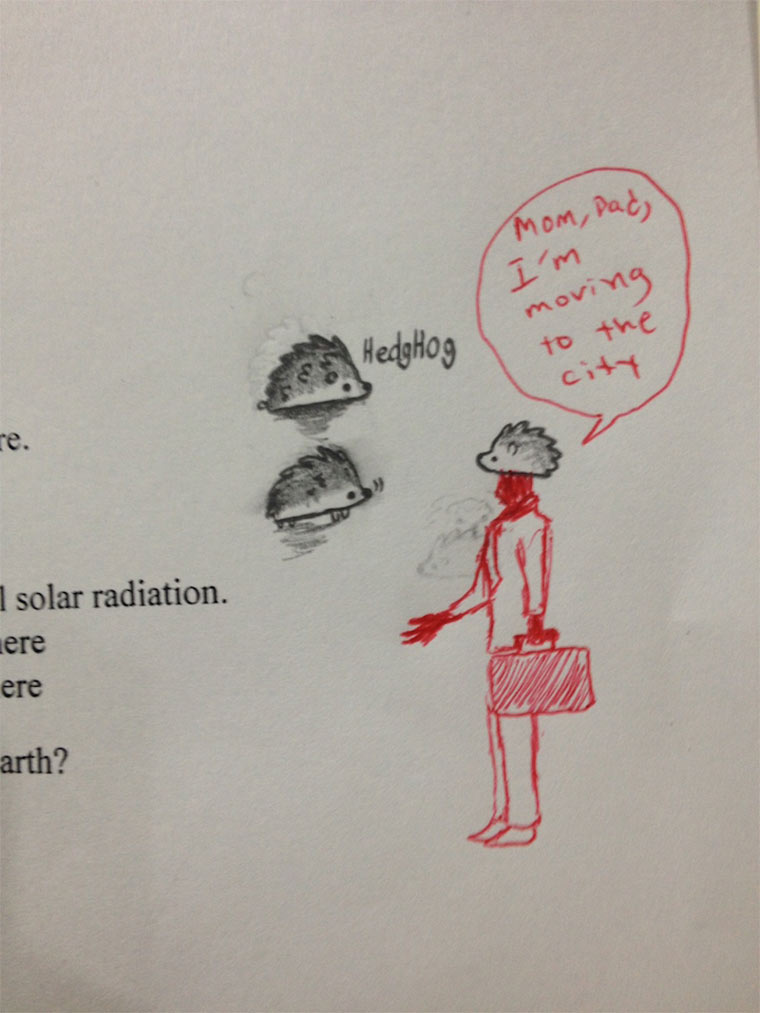 Mom, Dad,
I'm
moving
to the
city
HedgHog
re.
l solar radiation.
ere
ere
arth?